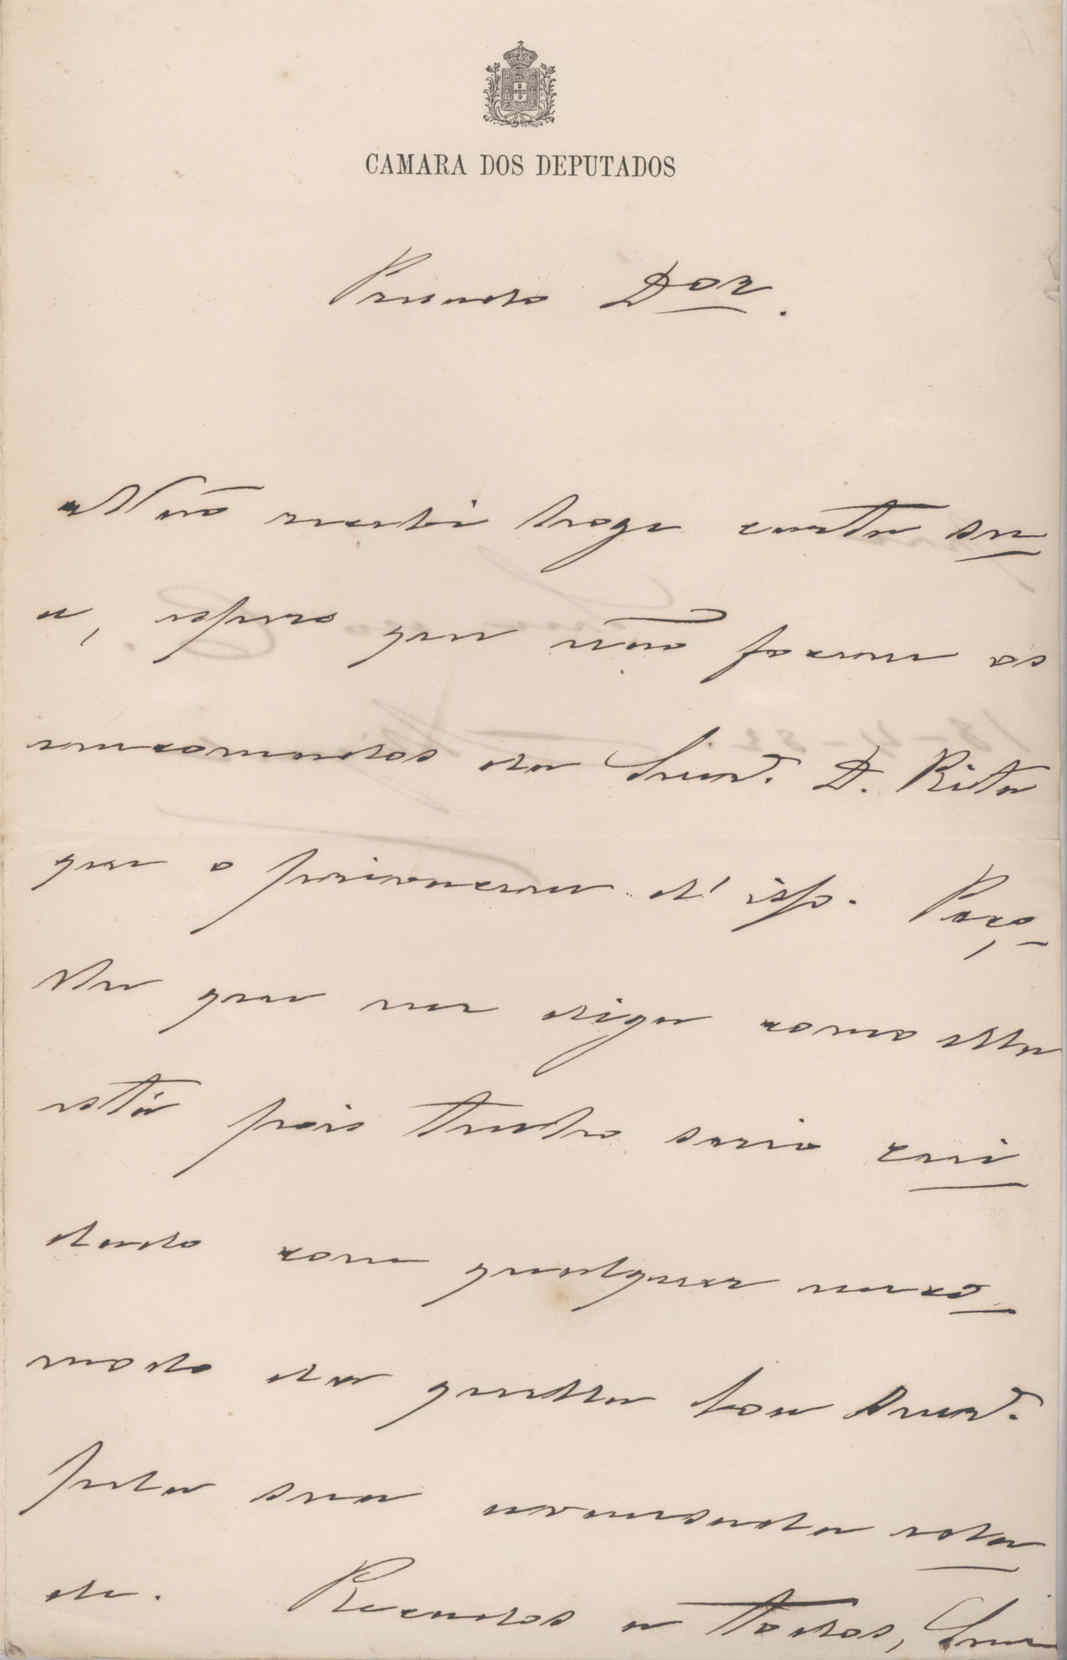 CAMARA DOS DEPUTADOS
Presado Dor.
Não recebi hoje carta su
a, espero que não fossem os
encomodos da Snra. D. Rita
que o privaram d'isso. Peço,
lhe que me diga como ella
está pois tenho serio cui
dado com qualquer inco
modo da quella boa Snra.
pela sua avansada ida
de. Recados a todos, Seu